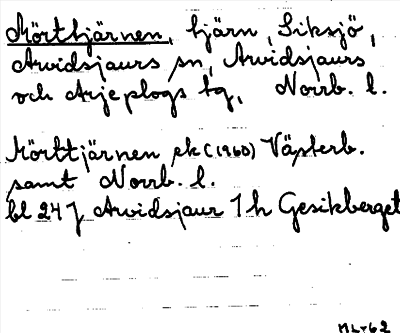 Mörttjärnen, tjärn, Siksjö,
Arvidsjaurs sn, Arvidsjaurs
och Arjeplogs tg, Norrb. l.
Mörttjärnen ek (1960) Västerb.
samt Norrb. l.
bl 24 J Arvidsjaur 1 h Gesikberget
ML-62